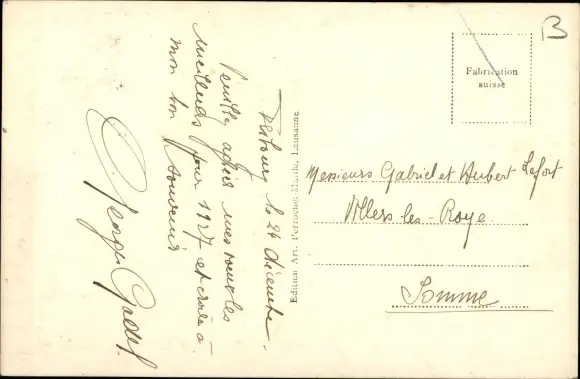 Fribourg le 24 décembre.
Veuillez agréer mes voeux les
meilleurs pour 1927 et croire à
mon bon souvenir
Georges
Edition Art. Perrochet-Matile, Lausanne.
B
Fabrication
suisse
Messieurs Gabriel et Hubert Lefort
Villers les-Roye.
Somme